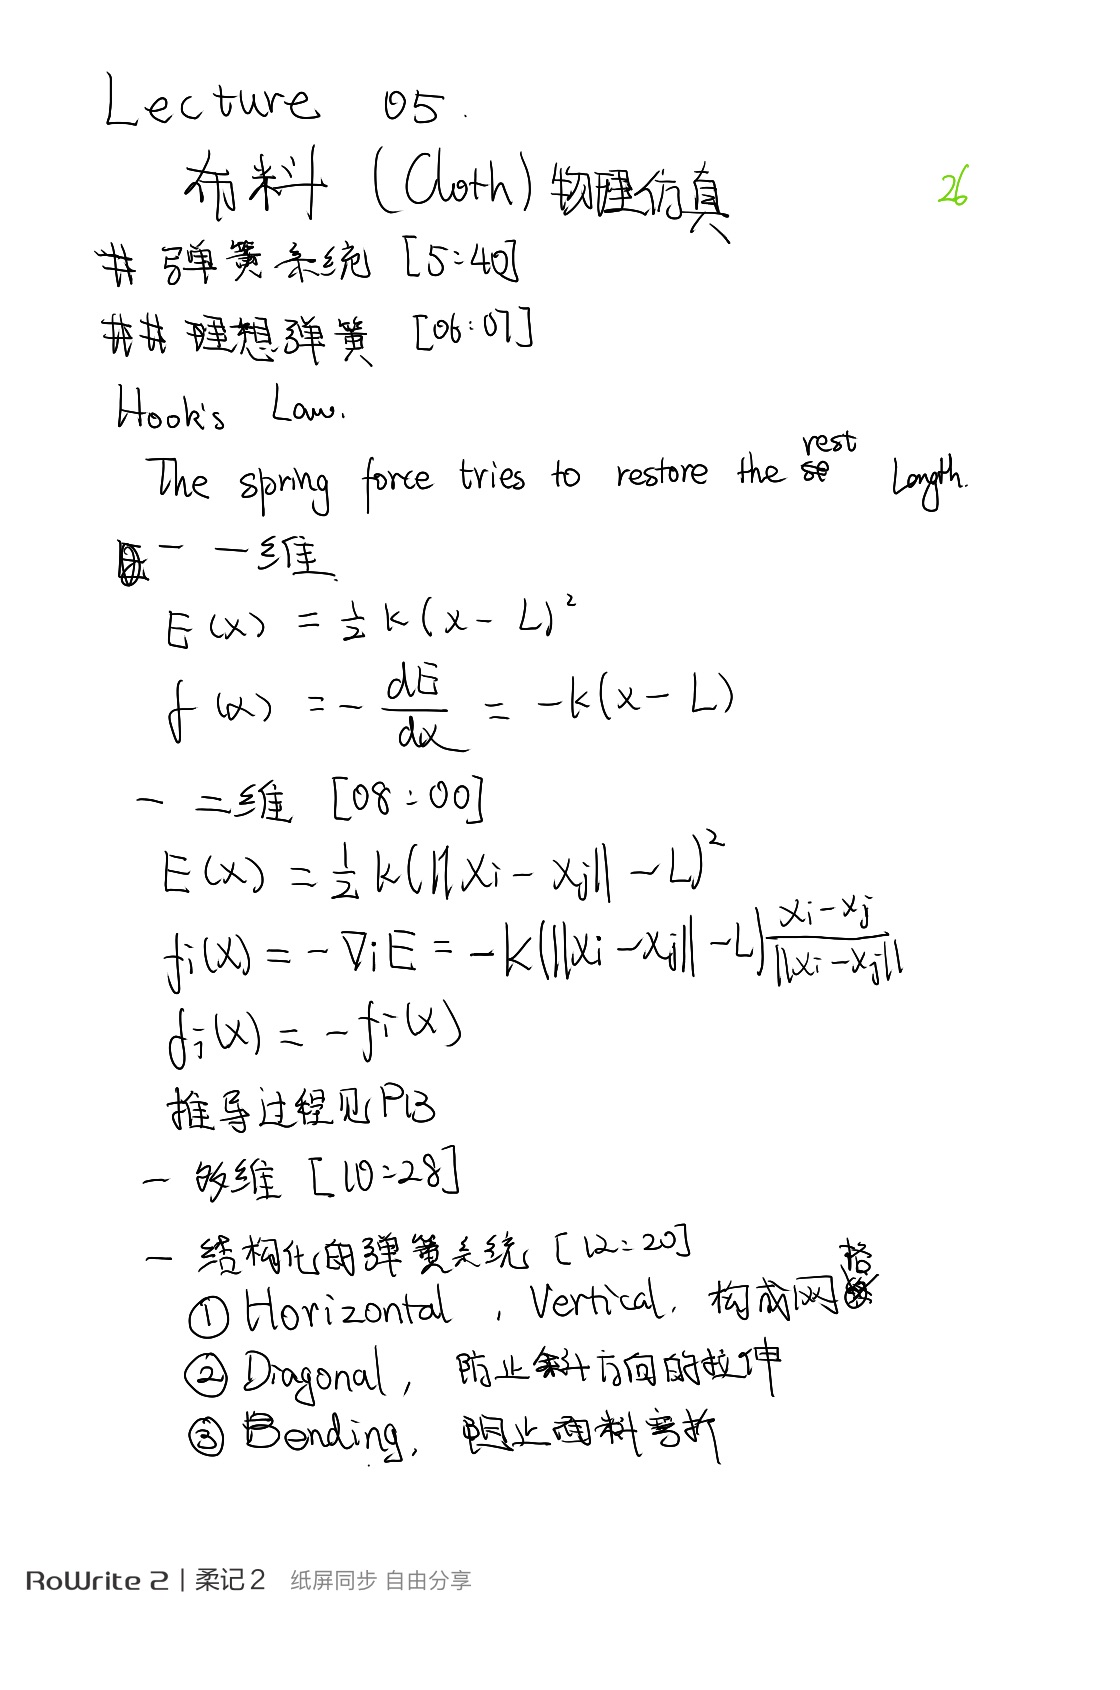 Lecture 05.
布料 (Cloth) 物理仿真
26
# 弹簧系统 [5:40]
## 理想弹簧 [06:07]
Hook's Law.
The spring force tries to restore the rest Length.
- 一维
E(x) = ½ k(x - L)²
f(x) = - dE/dx = -k(x - L)
- 二维 [08:00]
E(x) = ½ k(||xi - xj|| - L)²
fi(x) = -∇iE = -k(||xi - xj|| - L) (xi - xj)/||xi - xj||
fj(x) = -fi(x)
推导过程见P13
- 多维 [10:28]
- 结构化的弹簧系统 [12:20]
① Horizontal, Vertical, 构成网格
② Diagonal, 防止斜方向的拉伸
③ Bending, 阻止面料弯折
RoWrite 2 | 柔记2 纸屏同步 自由分享